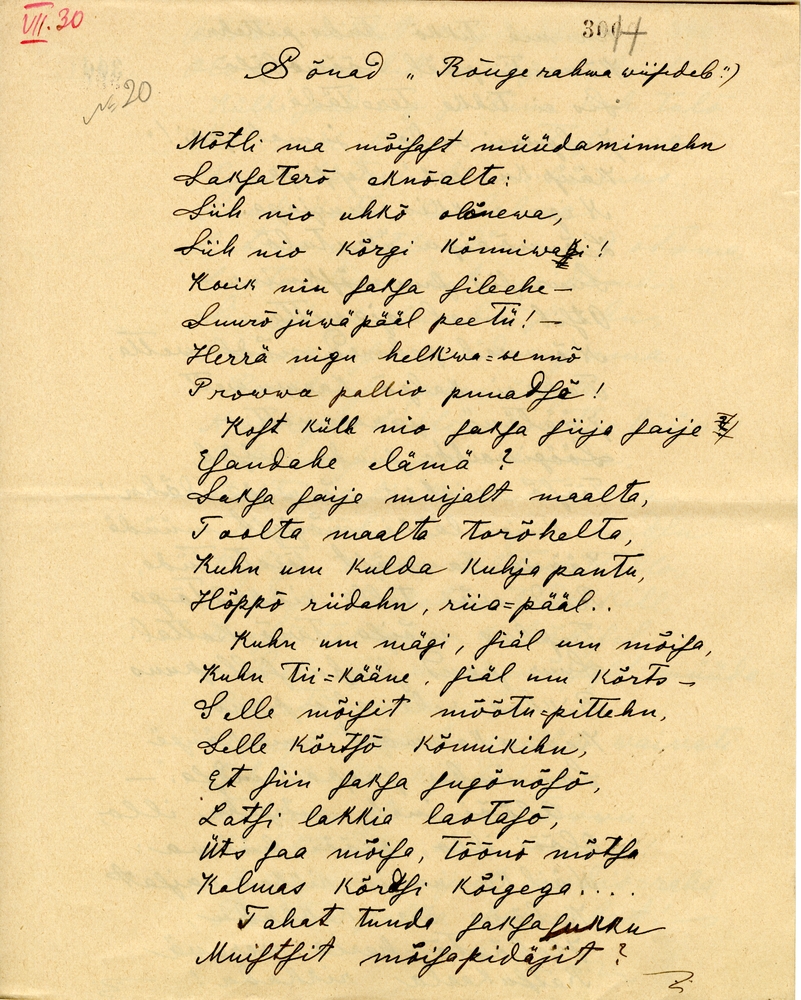 VII. 30
304
№ 20
Sõnad „Rõuge rahwa wiisidele“)
Mõtli ma mõisast müüdaminnehn
Saksatarõ aknõalta:
Siih nio uhkõ olõnewa,
Siih nio kõrgi kõnniwasi!
Koik niu saksa sileehe —
Suurõ jüwä pääl peetü! —
Herrä nigu helkwa-sennõ
Prowwa pallio punadsõ!
Kost küll nio saksa siija saije
Esandahe elämä?
Saksa saije muijalt maalta,
Toolta maalta torõhelta,
Kuhn um kulda kuhja pantu,
Hõppõ riidahn, riia-pääl..
Kuhn um mägi, siäl um mõisa,
Kuhn tii-kääne, siäl um kõrts —
Selle mõisit mõõtu-pittehn,
Selle kõrtsõ kõnnikihn,
Et siin saksa sugõnõsõ,
Latsi lakkia laotasõ,
Üts saa mõisa, tõõnõ mõtsa
Kolmas kõrdsi kõigega....
Tahat tunda saksasukku
Muistsit mõisapidäjit?